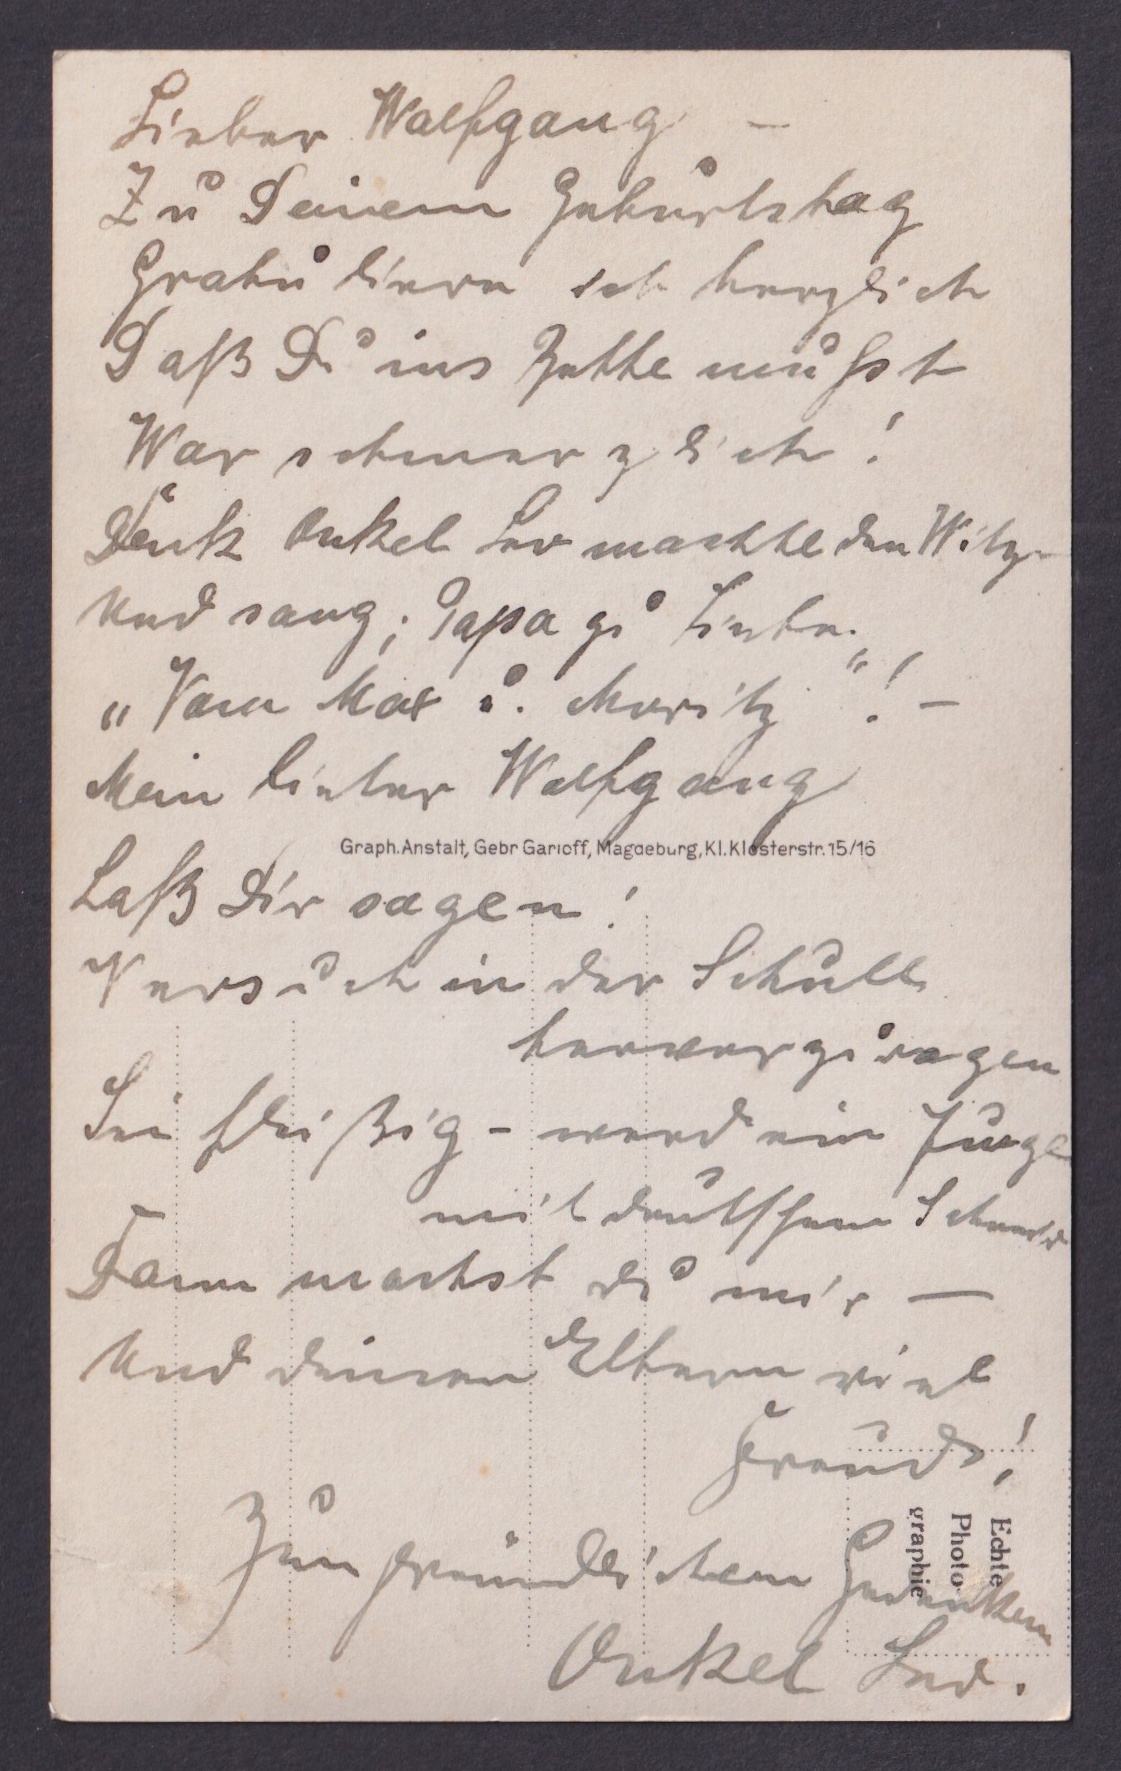 Lieber Wolfgang –
Zu Deinem Geburtstag
Gratuliere ich herzlich
Daß Du ins Bette mußst
War schmerzlich!
Denk Onkel Leo machte den Witz
Und sang; Papa zu Liebe.
„Vom Max u. Moritz“! –
Mein lieber Wolfgang
Graph. Anstalt, Gebr Garloff, Magdeburg, Kl. Klosterstr. 15/16
Laß Dir sagen!
Versuch in der Schule
hervorzuragen
Sei fleißig – werd ein Junge
mit deutschem
Dann machst du mir –
Und deinen Eltern viel
Freude!
Zum freundlichem Gedenken
Onkel Leo.
Echte
Photo
graphie